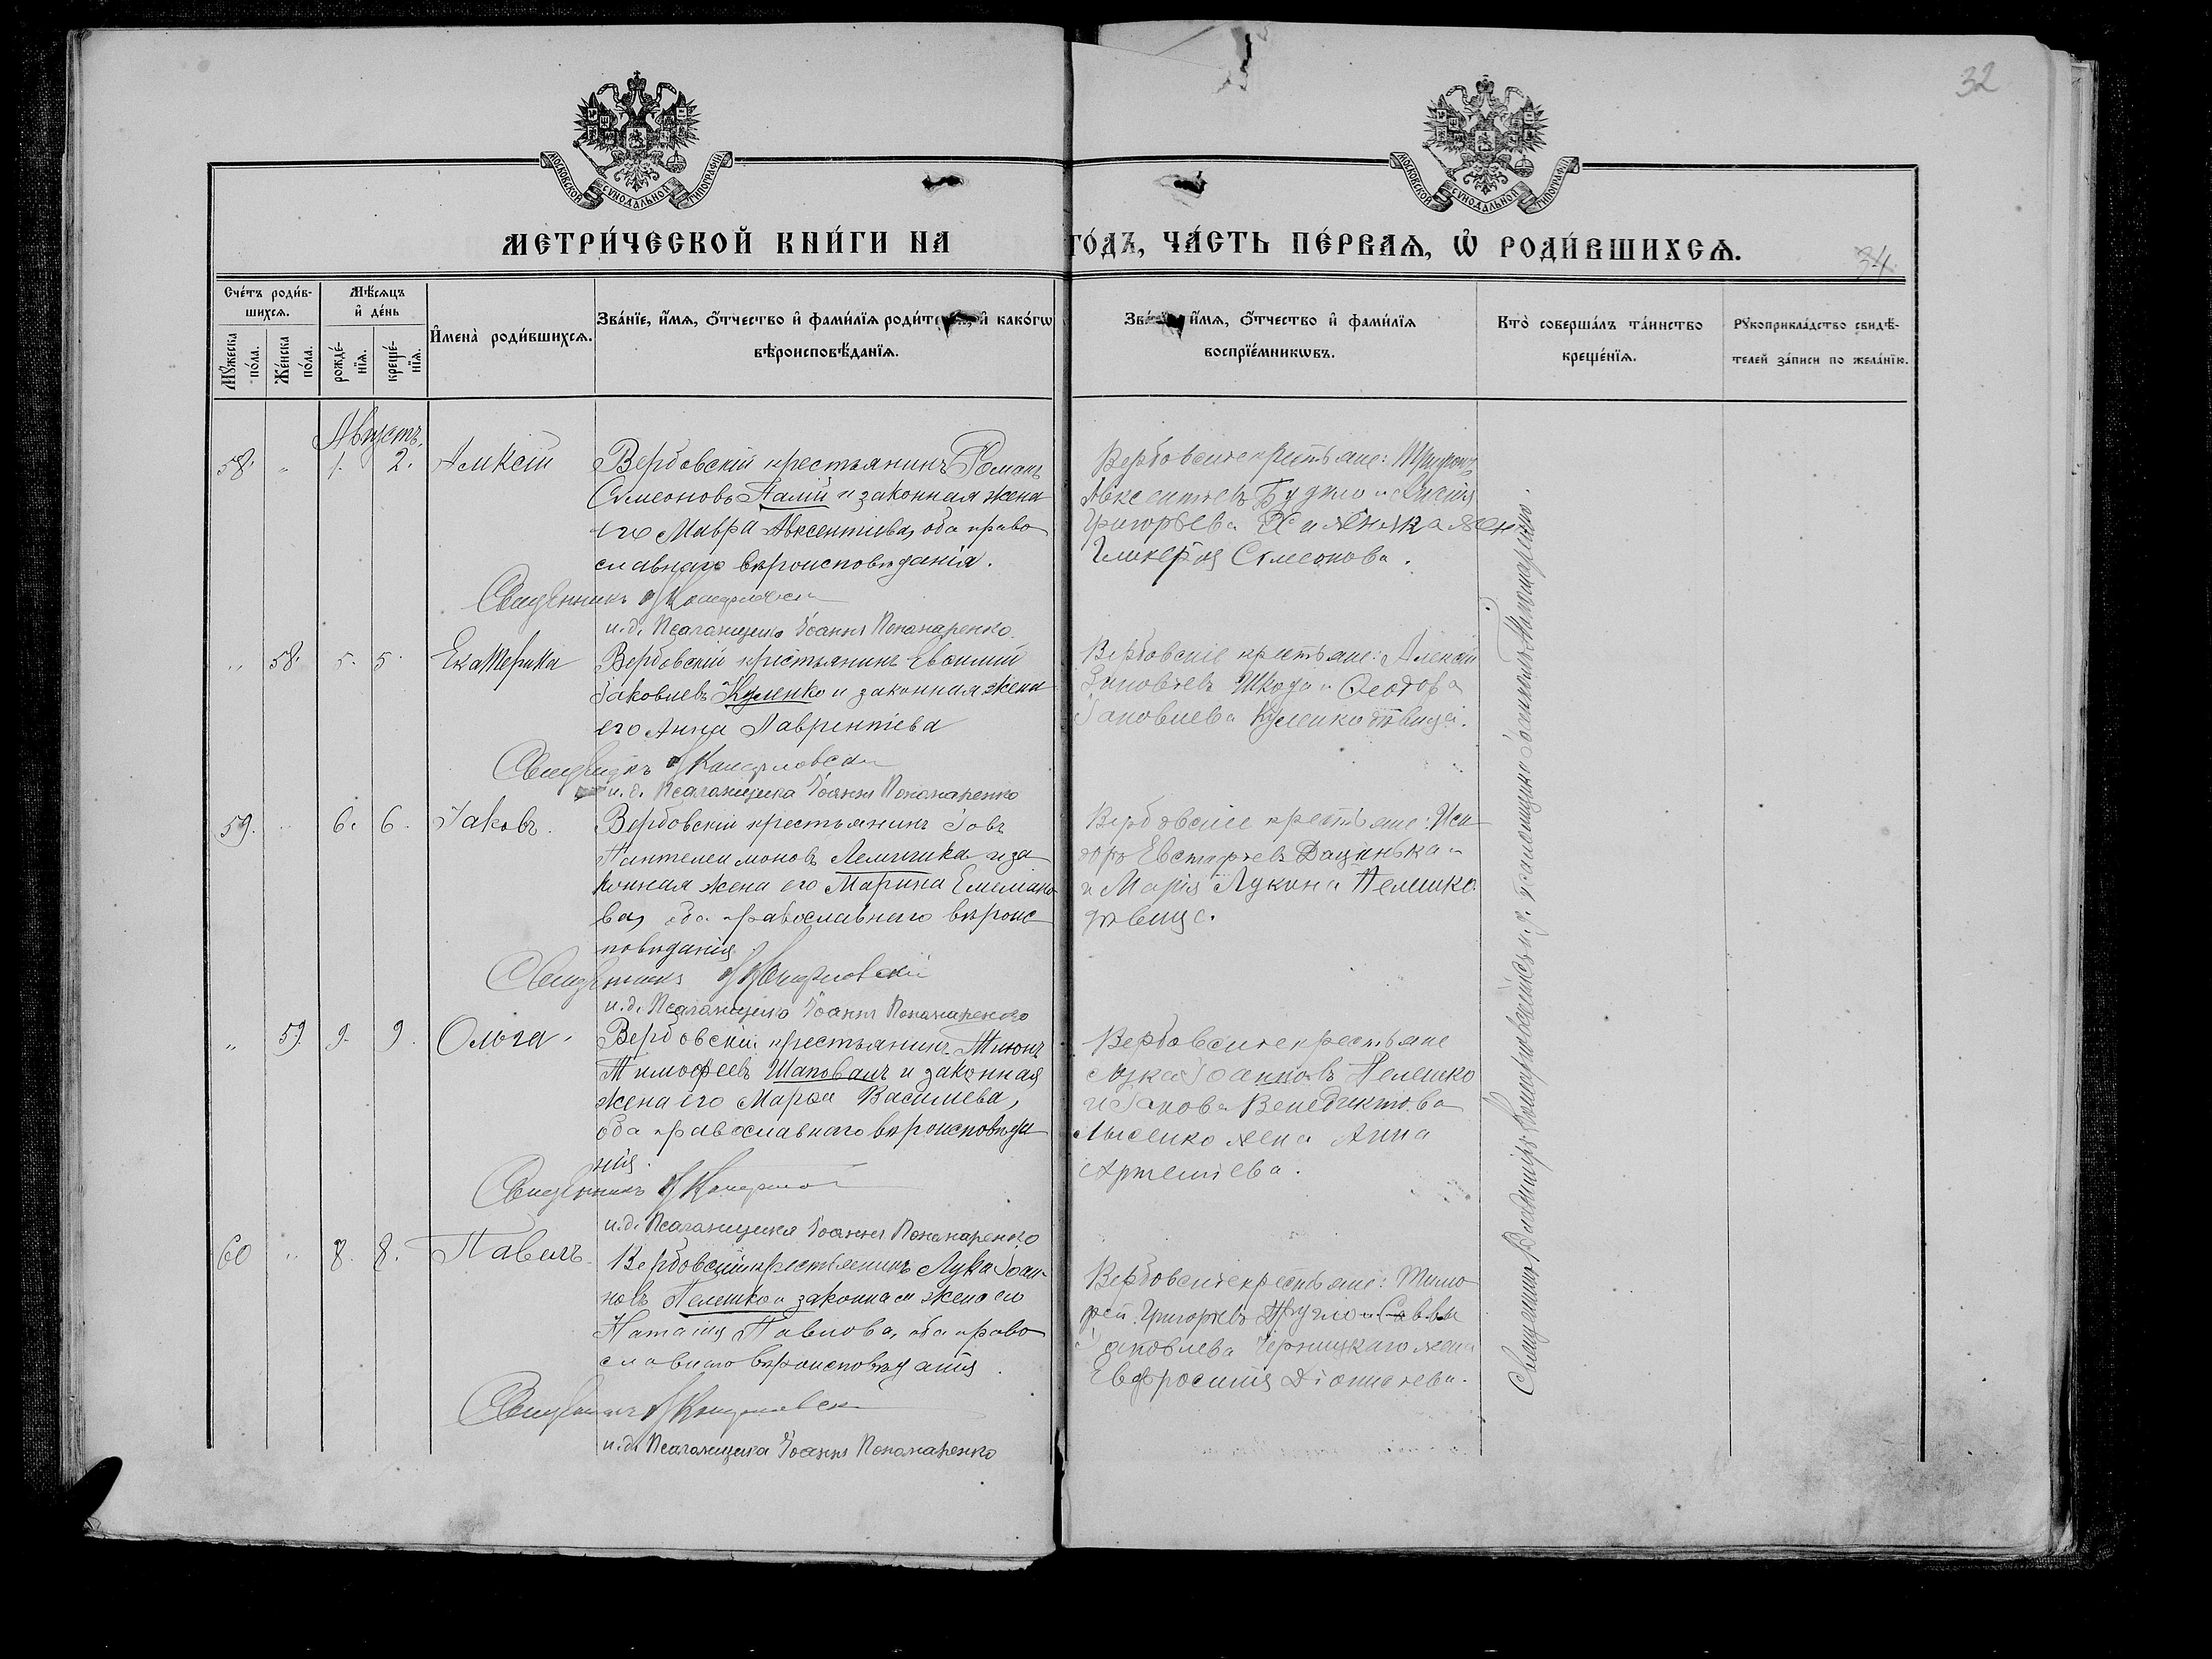 32
МОСКОВСКОЙ СѴНОДАЛЬНОЙ ТИПОГРАФІИ
МОСКОВСКОЙ СѴНОДАЛЬНОЙ ТИПОГРАФІИ
МЕТРИ́ЧЕСКОЙ КНИ́ГИ НА ГО́ДЪ, ЧА́СТЬ ПЕ́РВАѦ, Ѡ҆ РОДИ́ВШИХСѦ.
34
Сче́тъ роди́в-
шихсѧ.
Мѣ́сѧцъ
и҆ де́нь
Мꙋ́жеска по́ла.
Же́нска по́ла.
рожде́-нїѧ.
креще́-нїѧ.
И҆мена̀ роди́вшихсѧ.
Зва́нїе, и҆́мѧ, ѻ҆́тчество и҆ фами́лїѧ роди́т и҆ како́гѡ
вѣроисповѣ́данїѧ.
Зва и҆́мѧ, ѻ҆́тчество и҆ фами́лїѧ
воспрїе́мникѡвъ.
Кто̀ соверша́лъ та́инство
креще́нїѧ.
Рꙋкоприкла́дство свидѣ́-
телей за́писи по жела́нїю.
Августъ.
58. " 1. 2. Алексій
Вербовскій крестьянинъ Романъ
Симеоновъ Палій и законная жена
его Мавра Авксентіева, оба право
славнаго вѣроисповѣданія.
Священникъ
и.д. Псаломщика Іоаннъ Понамаренко
Вербовскіе крестьяне: Трифонъ
Авксентіевъ Будило и
Григорьева жена
Гликерія Симеонова.
" 58. 5. 5. Екатерина
Вербовскій крестьянинъ Евѳимій
Іаковлевъ Куленко и законная жена
его Анна Лаврентіева
Священникъ
и.д. Псаломщика Іоаннъ Понамаренко
Вербовскіе крестьяне: Алексій
Шкода и Ѳеодора
Іаковлева Куленко дѣвица.
59. " 6. 6. Іаковъ.
Вербовскій крестьянинъ Іовъ
Пантелеимоновъ и за
конная жена его Марина Емеліано
ва, оба православнаго вѣроис
повѣданія
Священникъ
и.д. Псаломщика Іоаннъ Понамаренко
Вербовскіе крестьяне: Иси
доръ Дацинька
и Марія Лукина Пелешко
дѣвица.
" 59 9. 9. Ольга.
Вербовскій крестьянинъ
Тимоѳеевъ Шаповалъ и законная
жена его Марѳа Василіева,
оба православнаго вѣроисповѣда
нія.
Священникъ
и.д. Псаломщика Іоаннъ Понамаренко
Вербовскіе крестьяне
Лука Іоанновъ Пелешко
и Іакова Венедиктова
Лысенко жена Анна
Артеміева.
60 " 8. 8. Павелъ.
Вербовскій крестьянинъ Лука Іоан-
новъ Пелешко и законная жена его
Наталія Павлова, оба право
славнаго вѣроисповѣданія.
Священникъ
и.д. Псаломщика Іоаннъ Понамаренко
Вербовскіе крестьяне: Тимо
ѳей Григорьевъ и Саввы
Іаковлева Черницкаго жена
Евфросинія Діонисіева.
Священникъ Владиміръ и.д. псаломщика Іоаннъ Понамаренко.